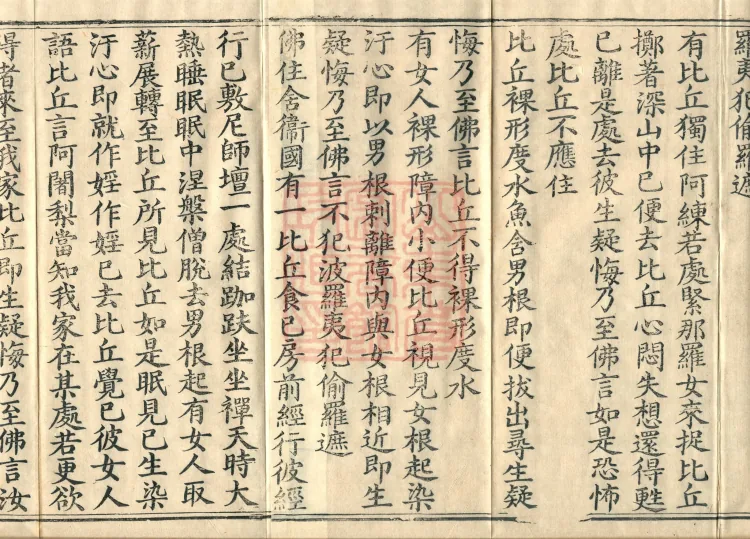 羅夷犯偷羅遮
有比丘獨住阿練若處緊那羅女來捉比丘
擲著深山中已便去比丘心悶失想還得甦
已離是處去彼生疑悔乃至佛言如是恐怖
處比丘不應住
比丘裸形度水魚含男根即便拔出尋生疑
悔乃至佛言比丘不得裸形度水
有女人裸形障內小便比丘視見女根起染
汙心即以男根刺離障內與女根相近即生
疑悔乃至佛言不犯波羅夷犯偷羅遮
佛住舍衞國有一比丘食已房前經行彼經
行已敷尼師壇一處結跏趺坐坐禪天時大
熱睡眠眠中涅槃僧脫去男根起有女人取
薪展轉至比丘所見比丘如是眠見已生染
汙心即就作婬作婬已去比丘覺已彼女人
語比丘言阿闍梨當知我家在某處若更欲
得者來至我家比丘即生疑悔乃至佛言汝